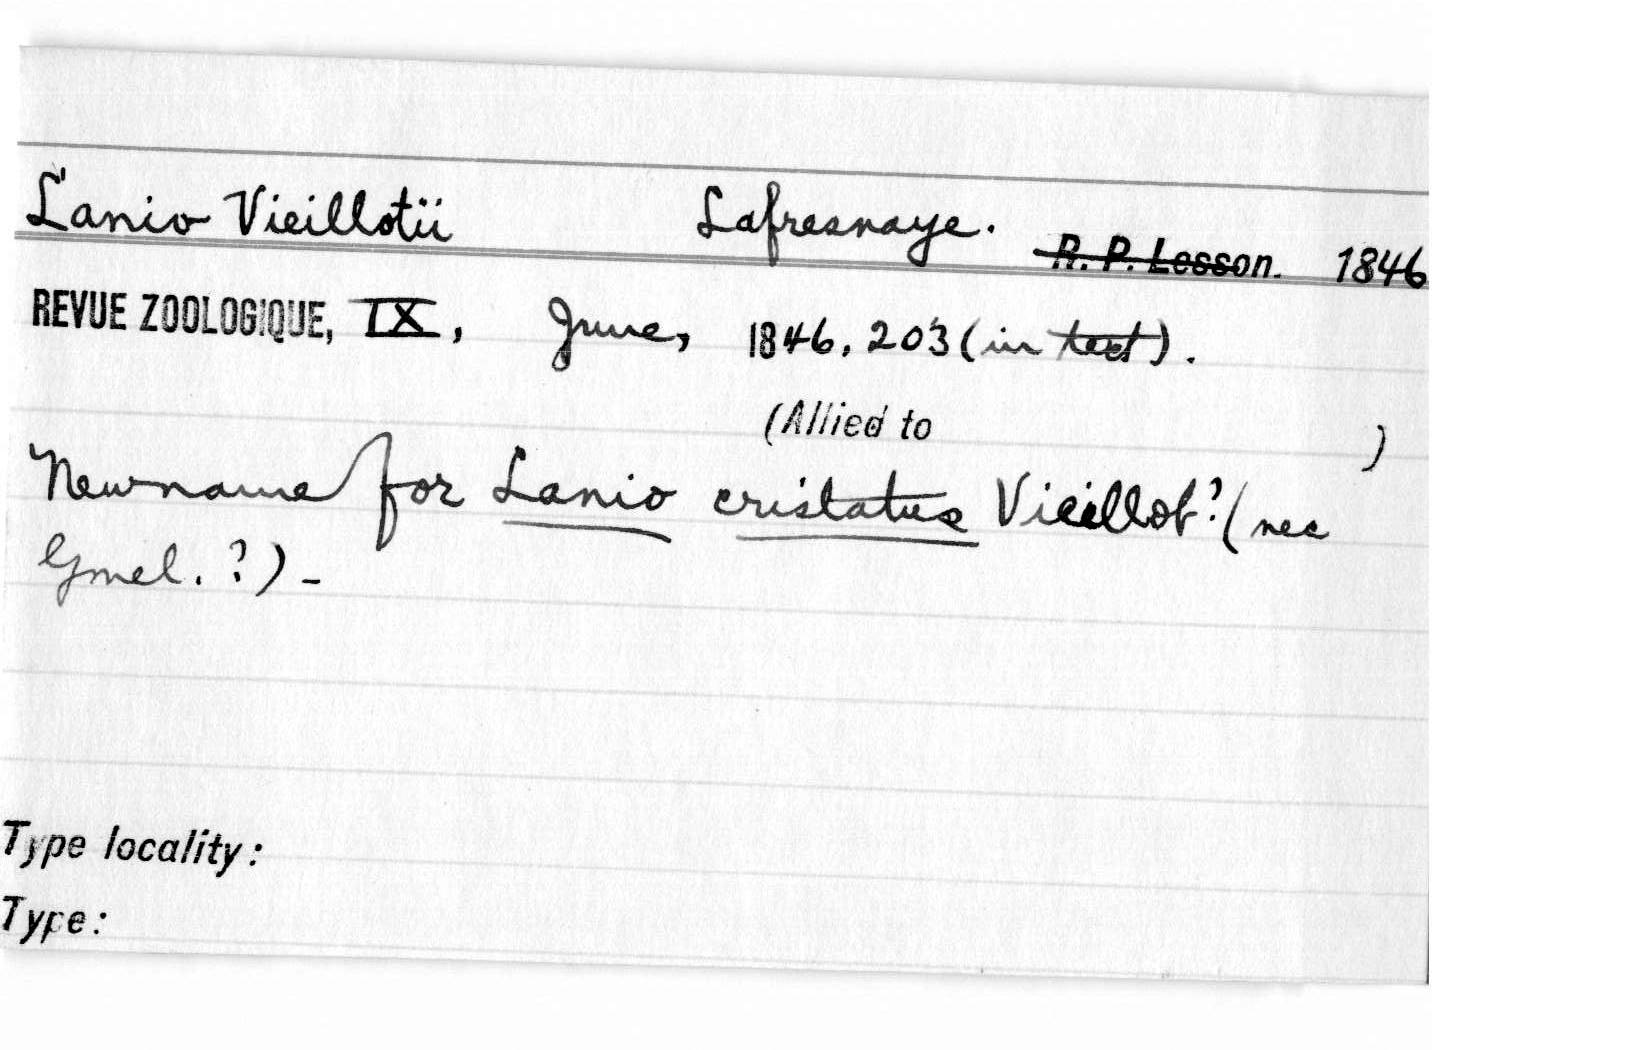 Lanio Vieillotii Lafresnaye. R. P. Lesson. 1846
REVUE ZOOLOGIQUE, IX, June, 1846, 203 (in text).
(Allied to )
New name for Lanio cristatus Vieillot? (nec
Gmel. ?) -
Type locality:
Type: